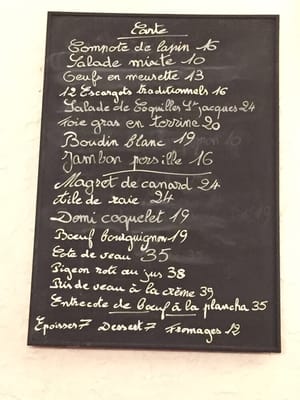 Carte
Compote de lapin 16
Salade mixte 10
Oeufs en meurette 13
12 Escargots traditionnels 16
Salade de Coquilles St jacques 24
Foie gras en terrine 20
Boudin blanc 19
Jambon persillé 16
Magret de canard 24
Aile de raie 24
Demi coquelet 19
Bœuf bourguignon 19
Cote de veau 35
Pigeon roti au jus 38
Ris de veau à la crème 39
Entrecote de bœuf à la plancha 35
Epoisses 7 Dessert 7 Fromages 12